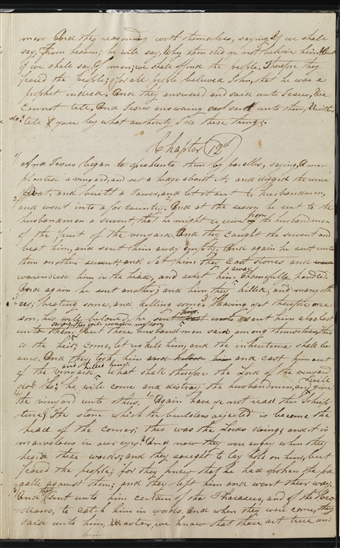 men. And they reasoned with themselves, saying, If we shall
say, From heaven, he will say, Why then did ye not believe him; But
if we shall say, Of men; we shall offend the people, Therefore they
feared the people; for all people believed John, that he was a
prophet indeed. And they answered and said unto Jesus, We
cannot tell. And Jesus answering said unto them, Neither
do I tell you by what authority I do these things.
Chapter 12th
And Jesus began to speak unto them by parables, saying, A man
planted a vineyard, and set a hedge about it, and digged the wine
fat, and built a tower, and let it out to husbandmen,
and went into a far country. And at the season he sent to the
husbandmen a servant, that he might receive from the husbandmen
of the fruit of the vineyard. And they caught the servant and
beat him, and sent him away empty. And again he sent unto
them another servant; and at him they cast stones and
wounded him in the head, and sent him away shamefully handled.
And again he sent another; and him they killed, and many oth
ers, beating some, and killing some. Having yet therefore one
son, his well beloved, he sent him also last
unto them, saying they will reverence my son;
But those husbandmen said among themselves, this
is the heir; come, let us kill him, and the inheritance shall be
ours. And they took him and cast him out
of the vineyard and killed him. What shall therefore the Lord of the vineyard
do? he will come and destroy the husbandmen, and will give
the vineyard unto others. Again have ye not read this scrip
ture; The stone which the builders rejected is become the
head of the corner; this was the Lords doing, and it is
marvelous in our eyes. And now they were angry when they
heard these words; and they sought to lay hold on him, but
feared the people; for they knew that he had spoken the pa
rable against them; and they left him and went their way.
And they sent unto him certain of the Pharisees, and of the Hero
dians, to catch him in words. And when they were come, they
said unto him, Master, we know that thou art true and